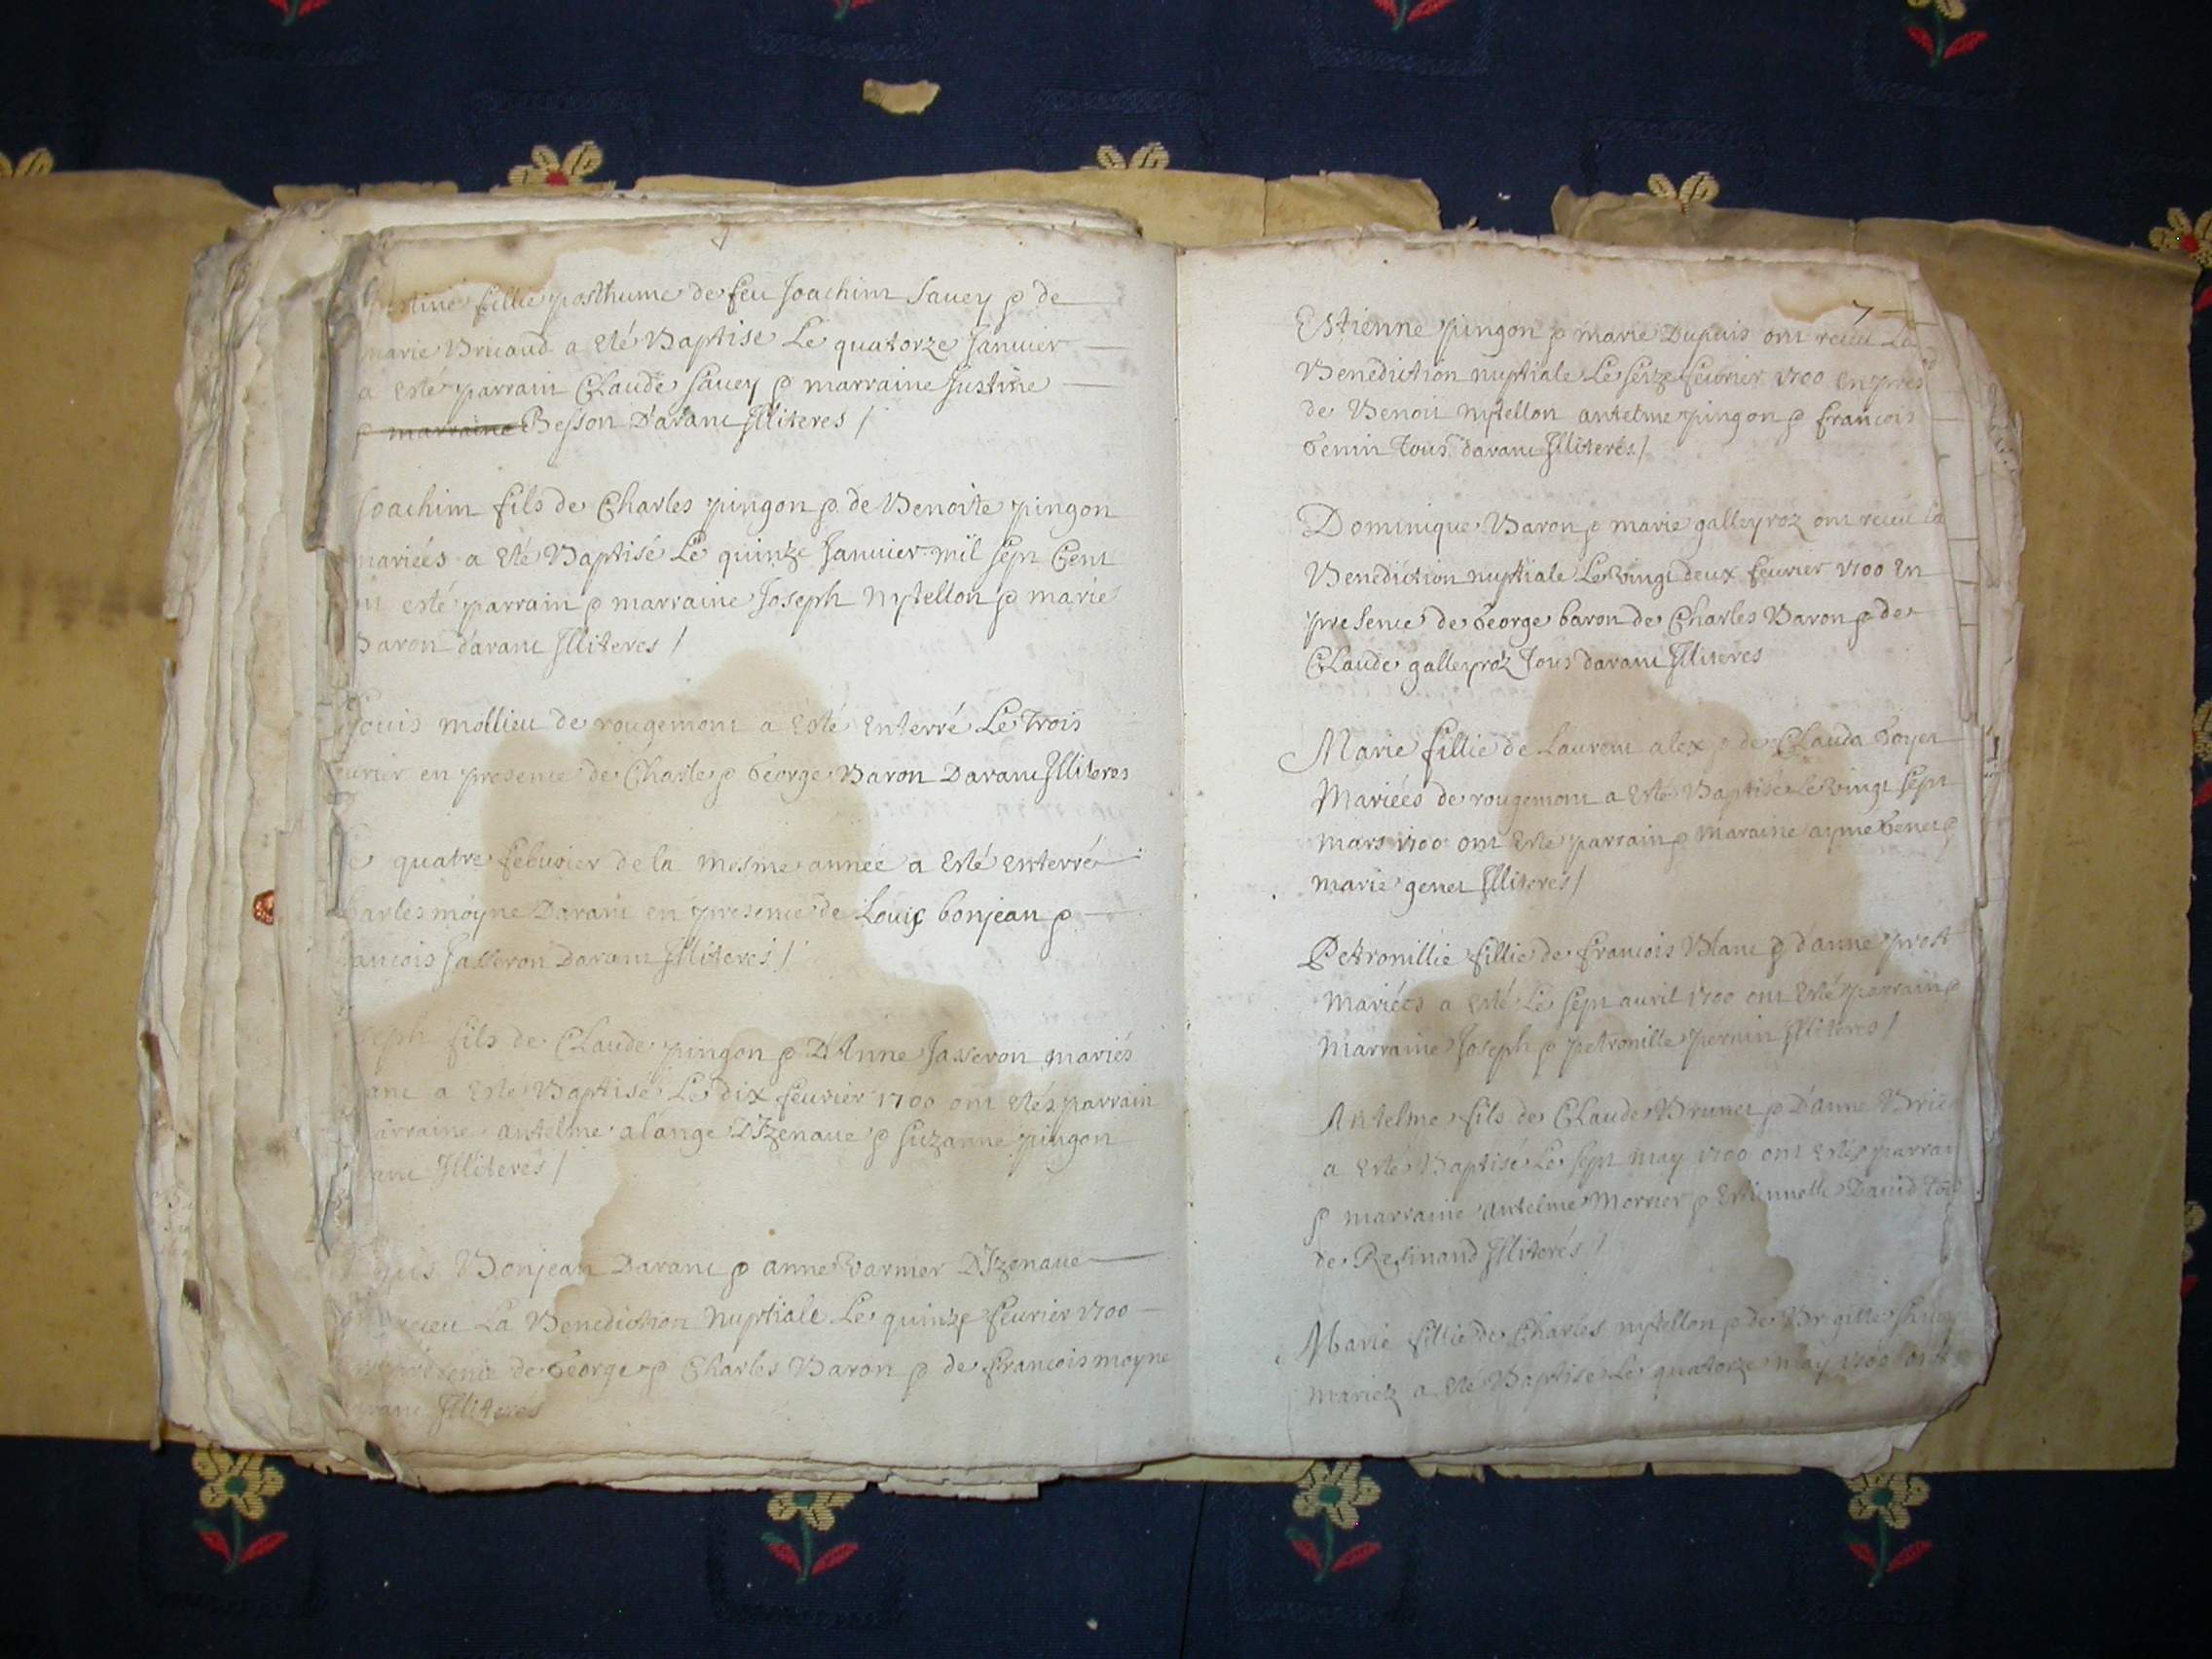 fillie posthume de feu Joachim Savey & de
marie Bricaud a eté Baptise Le quatorze Janvier
a esté parrain Claude Savey & marraine Justine
& marraine Besson D'aranc Illiteres /
Joachim fils de Charles pingon & de Benoite pingon
mariées a eté Baptisé Le quinze Janvier mil sept Cent
esté parrain & marraine Joseph Mytellon & marie
Baron d'aranc Illiteres /
Louis mollieu de rougemont a Esté Enterré Le trois
en presence de Charle & George Baron Daranc Illiteres
quatre febvrier de la mesme année a Esté Enterré
Charles moyne Daranc en presence de Louis bonjean &
francois Jasseron Daranc Illiteres /
fils de Claude pingon & D'Anne Jasseron mariés
a Esté Baptisé Le dix fevrier 1700 ont etés parrain
marraine antelme alange D'Izenave & Suzanne pingon
Illiteres /
Bonjean Daranc & anne varnier D'Izenave
receu La Benediction Nuptiale Le quinze fevrier 1700
presence de George & Charles Baron & de francois moyne
Illiteres
7
Estienne pingon & marie Dupuis ont receu La
Benediction nuptiale Le seize fevrier 1700 en pres
de Benoit Mytellon antelme pingon & francois
Genin tous daranc Illiterés /
Dominique Baron & marie galleyroz ont receu la
Benediction nuptiale Le vingt deux fevrier 1700 En
presence de George baron de Charles Baron & de
Claude galleyroz tous daranc Illiteres
Marie fillie de Laurent alex & de Clauda Goyet
Mariées de rougemont a Esté Baptisée Le vingt sept
mars 1700 ont Esté parrain & maraine ayme Genet &
marie genet Illiteres /
Petronillie fillie de francois Blanc & d'anne prost
mariées a Esté Le sept avril 1700 ont Esté parrain &
marraine Joseph & petronille pernin Illiteres /
Antelme fils de Claude Brunet & D'anne
a Esté Baptisé Le sept may 1700 ont Estés parrai
& marraine antelme Morrier & Estiennette David
de Resinand Illiterés /
Marie fillie de Charles mytellon & de
mariez a Eté Baptisée Le quatorze may 1700 ont